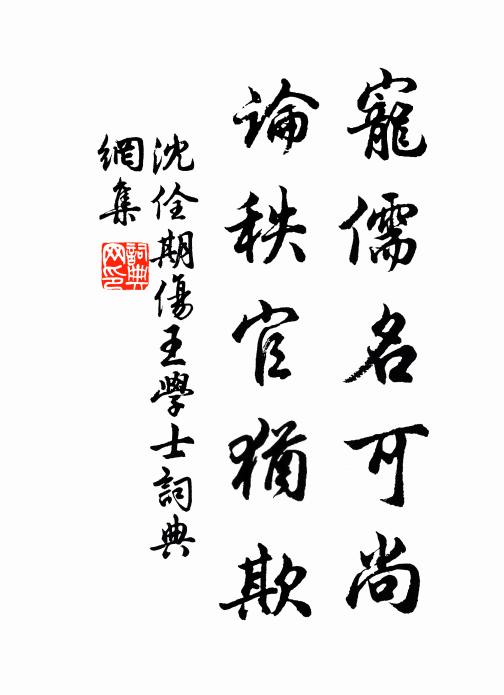 寵儒名可尚
論秩官猶欺
沈佺期傷王學士詞典
網集
詞典
网印